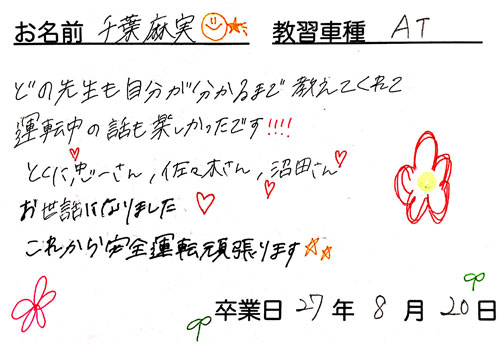 お名前 千葉麻実 教習車種 AT
どの先生も自分が分かるまで教えてくれて
運転中の話も楽しかったです!!!!
とくに忠一さん,佐々木さん,沼田さん
お世話になりました
これから安全運転頑張ります
卒業日 27年 8月 20日